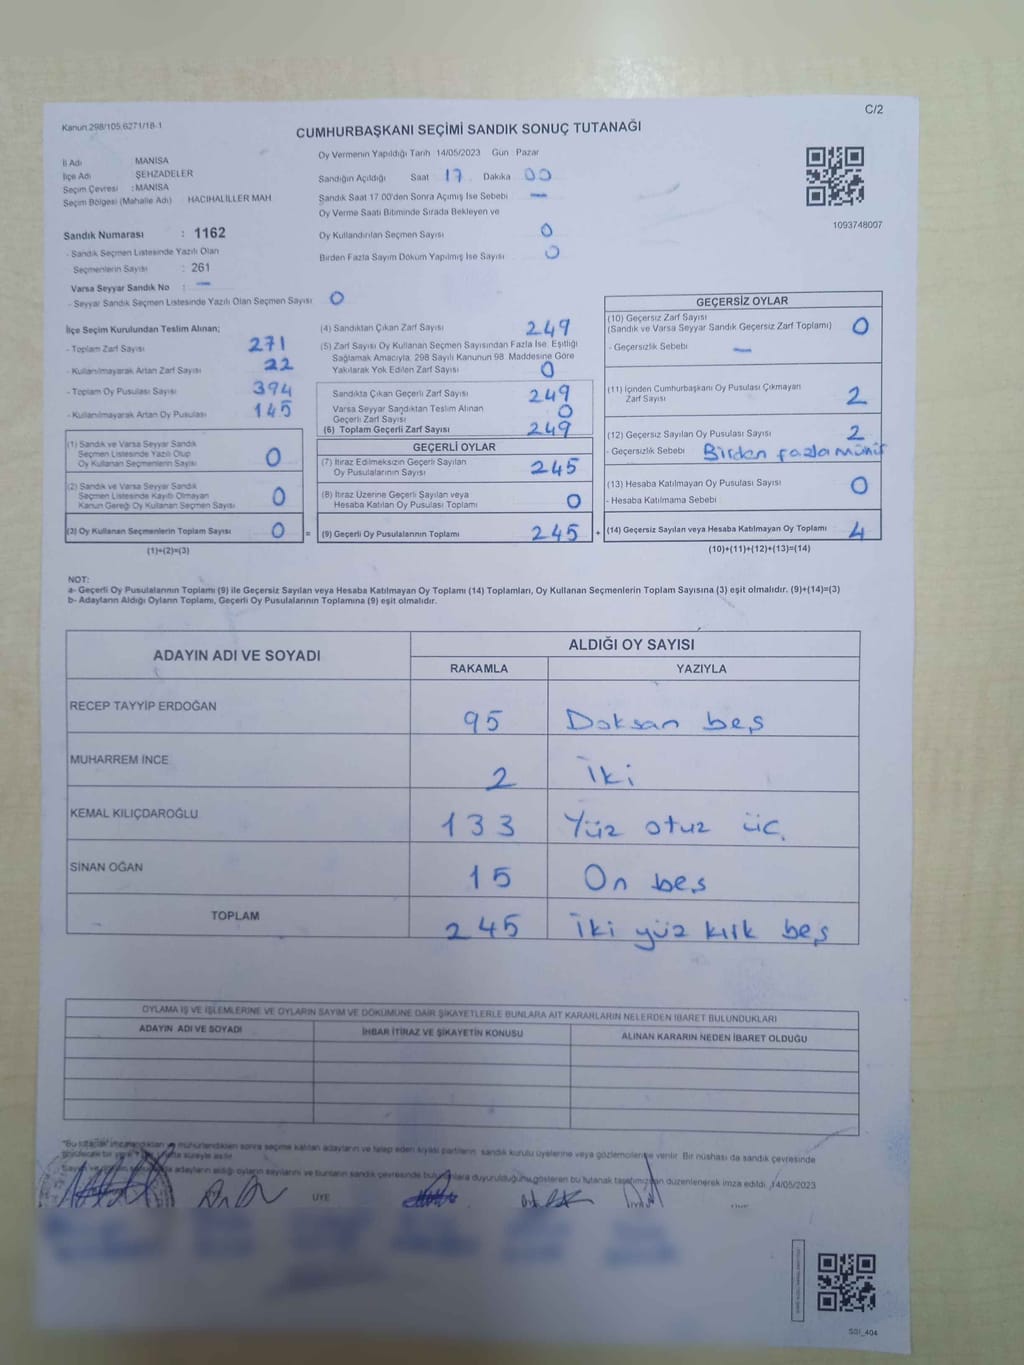 C/2
Kanun 298/105.6271/18-1
CUMHURBAŞKANI SEÇİMİ SANDIK SONUÇ TUTANAĞI
İl Adı MANİSA
İlçe Adı ŞEHZADELER
Seçim Çevresi : MANİSA
Seçim Bölgesi (Mahalle Adı) HACIHALİLLER MAH
Sandık Numarası : 1162
- Sandık Seçmen Listesinde Yazılı Olan
Seçmenlerin Sayısı : 261
Varsa Seyyar Sandık No : —
- Seyyar Sandık Seçmen Listesinde Yazılı Olan Seçmen Sayısı 0
Oy Vermenin Yapıldığı Tarih 14/05/2023 Gün Pazar
Sandığın Açıldığı Saat 17 Dakika 00
Sandık Saat 17.00'den Sonra Açılmış İse Sebebi —
Oy Verme Saati Bitiminde Sırada Bekleyen ve
Oy Kullandırılan Seçmen Sayısı 0
Birden Fazla Sayım Döküm Yapılmış İse Sayısı 0
1093748007
İlçe Seçim Kurulundan Teslim Alınan;
- Toplam Zarf Sayısı 271
- Kullanılmayarak Artan Zarf Sayısı 22
- Toplam Oy Pusulası Sayısı 394
- Kullanılmayarak Artan Oy Pusulası 145
(1) Sandık ve Varsa Seyyar Sandık
Seçmen Listesinde Yazılı Olup
Oy Kullanan Seçmenlerin Sayısı 0
(2) Sandık ve Varsa Seyyar Sandık
Seçmen Listesinde Kayıtlı Olmayan
Kanun Gereği Oy Kullanan Seçmen Sayısı 0
(3) Oy Kullanan Seçmenlerin Toplam Sayısı 0 =
(1)+(2)=(3)
(4) Sandıktan Çıkan Zarf Sayısı 249
(5) Zarf Sayısı Oy Kullanan Seçmen Sayısından Fazla İse, Eşitliği
Sağlamak Amacıyla, 298 Sayılı Kanunun 98. Maddesine Göre
Yakılarak Yok Edilen Zarf Sayısı 0
Sandıkta Çıkan Geçerli Zarf Sayısı 249
Varsa Seyyar Sandıktan Teslim Alınan
Geçerli Zarf Sayısı 0
(6) Toplam Geçerli Zarf Sayısı 249
GEÇERLİ OYLAR
(7) İtiraz Edilmeksizin Geçerli Sayılan
Oy Pusulalarının Sayısı 245
(8) İtiraz Üzerine Geçerli Sayılan veya
Hesaba Katılan Oy Pusulası Toplamı 0
(9) Geçerli Oy Pusulalarının Toplamı 245 +
GEÇERSİZ OYLAR
(10) Geçersiz Zarf Sayısı
(Sandık ve Varsa Seyyar Sandık Geçersiz Zarf Toplamı) 0
- Geçersizlik Sebebi —
(11) İçinden Cumhurbaşkanı Oy Pusulası Çıkmayan
Zarf Sayısı 2
(12) Geçersiz Sayılan Oy Pusulası Sayısı 2
- Geçersizlik Sebebi Birden fazla mühür
(13) Hesaba Katılmayan Oy Pusulası Sayısı 0
- Hesaba Katılmama Sebebi
(14) Geçersiz Sayılan veya Hesaba Katılmayan Oy Toplamı 4
(10)+(11)+(12)+(13)=(14)
NOT:
a- Geçerli Oy Pusulalarının Toplamı (9) ile Geçersiz Sayılan veya Hesaba Katılmayan Oy Toplamı (14) Toplamları, Oy Kullanan Seçmenlerin Toplam Sayısına (3) eşit olmalıdır. (9)+(14)=(3)
b- Adayların Aldığı Oyların Toplamı, Geçerli Oy Pusulalarının Toplamına (9) eşit olmalıdır.
ADAYIN ADI VE SOYADI ALDIĞI OY SAYISI
RAKAMLA YAZIYLA
RECEP TAYYİP ERDOĞAN 95 Doksan beş
MUHARREM İNCE 2 İki
KEMAL KILIÇDAROĞLU 133 Yüz otuz üç
SİNAN OĞAN 15 On beş
TOPLAM 245 İki yüz kırk beş
OYLAMA İŞ VE İŞLEMLERİNE VE OYLARIN SAYIM VE DÖKÜMÜNE DAİR ŞİKAYETLERLE BUNLARA AİT KARARLARIN NELERDEN İBARET BULUNDUKLARI
ADAYIN ADI VE SOYADI İHBAR İTİRAZ VE ŞİKAYETİN KONUSU ALINAN KARARIN NEDEN İBARET OLDUĞU
"Bu tutanak imzalandıktan ve mühürlendikten sonra seçime katılan adayların ve talep eden siyasi partilerin sandık kurulu üyelerine veya gözlemcilerine verilir. Bir nüshası da sandık çevresinde
süreyle asılır
adayların aldığı oyların sayılarını ve bunların sandık çevresinde duyurulduğunu gösteren bu tutanak tarafımızdan düzenlenerek imza edildi. 14/05/2023
ÜYE
SSI_404